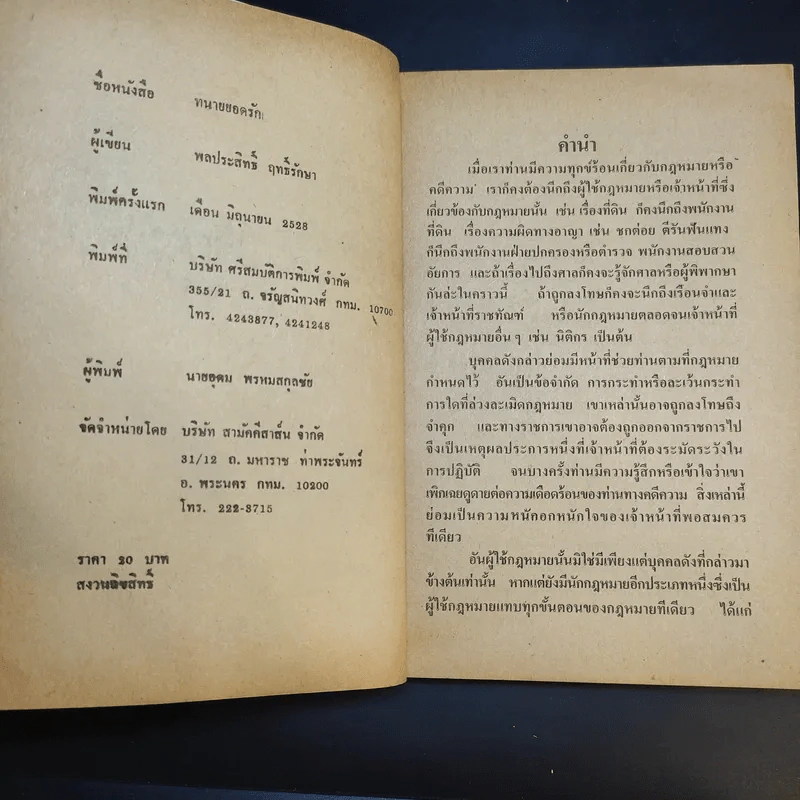 ชื่อหนังสือ ทนายยอดรัก
ผู้เขียน พลประสิทธิ์ ฤทธิ์รักษา
พิมพ์ครั้งแรก เดือน มิถุนายน 2528
พิมพ์ที่ บริษัท ศรีสมบัติการพิมพ์ จำกัด
355/21 ถ. จรัญสนิทวงศ์ กทม. 10700
โทร. 4243877, 4241248
ผู้พิมพ์ นายอุดม พรหมสกุลชัย
จัดจำหน่ายโดย บริษัท สามัคคีสาส์น จำกัด
31/12 ถ. มหาราช ท่าพระจันทร์
อ. พระนคร กทม. 10200
โทร. 222-3715
ราคา 20 บาท
สงวนลิขสิทธิ์
คำนำ
เมื่อเราท่านมีความทุกข์ร้อนเกี่ยวกับกฎหมายหรือ
คดีความ เราก็คงต้องนึกถึงผู้ใช้กฎหมายหรือเจ้าหน้าที่ซึ่ง
เกี่ยวข้องกับกฎหมายนั้น เช่น เรื่องที่ดิน ก็คงนึกถึงพนักงาน
ที่ดิน เรื่องความผิดทางอาญา เช่น ชกต่อย ตีรันฟันแทง
ก็นึกถึงพนักงานฝ่ายปกครองหรือตำรวจ พนักงานสอบสวน
อัยการ และถ้าเรื่องไปถึงศาลก็คงจะรู้จักศาลหรือผู้พิพากษา
กันล่ะในคราวนี้ ถ้าถูกลงโทษก็คงจะนึกถึงเรือนจำและ
เจ้าหน้าที่ราชทัณฑ์ หรือนักกฎหมายตลอดจนเจ้าหน้าที่
ผู้ใช้กฎหมายอื่น ๆ เช่น นิติกร เป็นต้น
บุคคลดังกล่าวย่อมมีหน้าที่ช่วยท่านตามที่กฎหมาย
กำหนดไว้ อันเป็นข้อจำกัด การกระทำหรือละเว้นกระทำ
การใดที่ล่วงละเมิดกฎหมาย เขาเหล่านั้นอาจถูกลงโทษถึง
จำคุก และทางราชการเขาอาจต้องถูกออกจากราชการไป
จึงเป็นเหตุผลประการหนึ่งที่เจ้าหน้าที่ต้องระมัดระวังใน
การปฏิบัติ จนบางครั้งท่านมีความรู้สึกหรือเข้าใจว่าเขา
เพิกเฉยดูดายต่อความเดือดร้อนของท่านทางคดีความ สิ่งเหล่านี้
ย่อมเป็นความหนักอกหนักใจของเจ้าหน้าที่พอสมควร
ทีเดียว
อันผู้ใช้กฎหมายนั้นมิใช่มีเพียงแต่บุคคลดังที่กล่าวมา
ข้างต้นเท่านั้น หากแต่ยังมีนักกฎหมายอีกประเภทหนึ่งซึ่งเป็น
ผู้ใช้กฎหมายแทบทุกขั้นตอนของกฎหมายทีเดียว ได้แก่